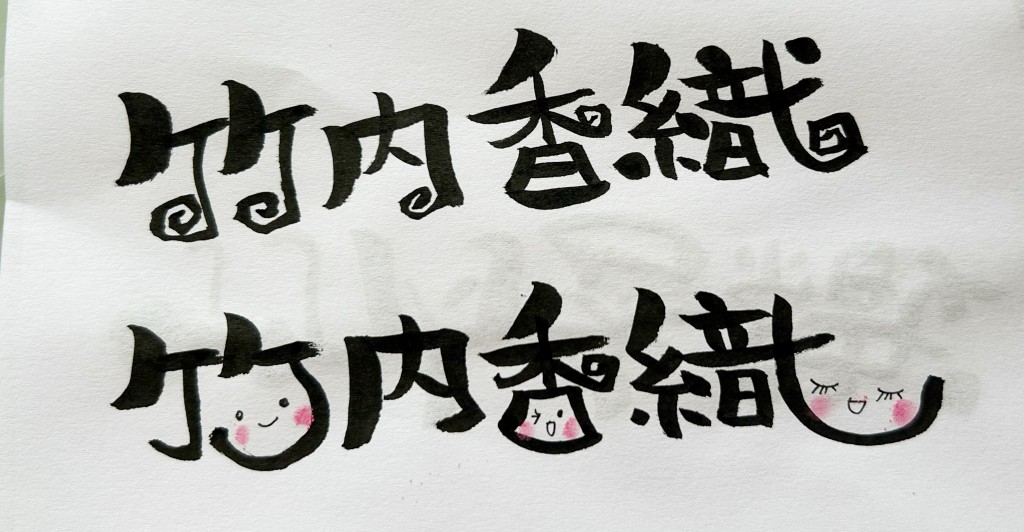 竹内香織
竹内香織